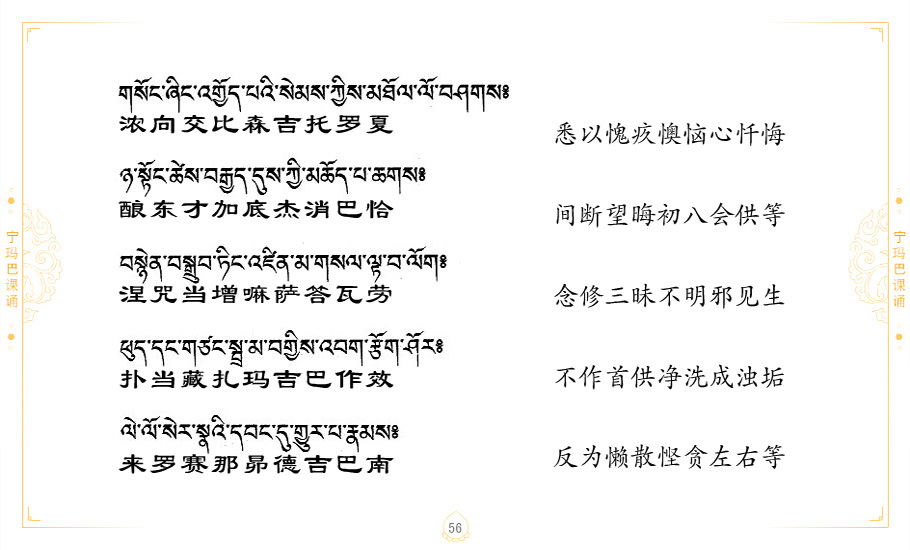 གསོང་ཞིང་འགྱོད་པའི་སེམས་ཀྱིས་མཐོལ་ལོ་བཤགས༔
浓向交比森吉托罗夏
悉以愧疚懊恼心忏悔
ཉ་སྟོང་ཚེས་བརྒྱད་དུས་ཀྱི་མཆོད་པ་ཆགས༔
酿东才加底杰消巴恰
间断望晦初八会供等
བསྙེན་བསྒྲུབ་ཏིང་འཛིན་མ་གསལ་ལྟ་བ་ལོག༔
涅咒当增嘛萨答瓦劳
念修三昧不明邪见生
ཕུད་དང་གཙང་སྦྲ་མ་བགྱིས་འབག་རྩོག་ཤོར༔
扑当藏扎玛吉巴作效
不作首供净洗成浊垢
ལེ་ལོ་སེར་སྣའི་དབང་དུ་གྱུར་པ་རྣམས༔
来罗赛那昴德吉巴南
反为懒散悭贪左右等
宁玛巴课诵
宁玛巴课诵
56